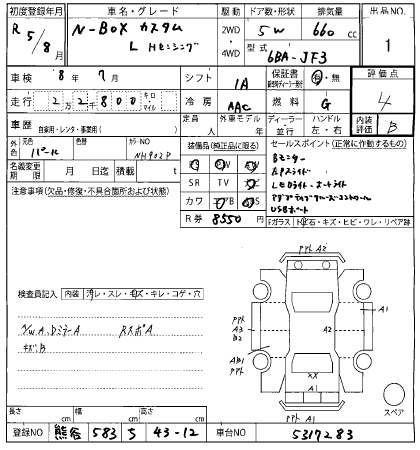 初度登録年月 車名・グレード 駆動 ドア数・形状 排気量 出品NO.
R 5/8月 N-BOX カスタム 2WD ・ 4WD 5W 660 cc 1
L Hセンシング 型式 6BA-JF3
車検 8年 7月 シフト IA 保証書 有・無 評価点
走行 2万2千800 キロ マイル 冷房 AAC 燃料 G 4
車歴 自家用・レンタ・事業用( ) 定員 人 外車モデル 年 ディーラー 並行 ハンドル 左・右 内装評価 B
外色 元色 パール 色替 カラーNO NH902P 装備品(純正品に限る) セールスポイント(正常に作動するもの)
名義変更期限 月 日 積載 t PS PW
Bモニター
SR TV
LEDライト・オートライト
注意事項(欠品・修復・不具合箇所および状態) カワ
アダプティブクルーズコントロール
R券 8550円
USBポート
Fガラス・トビ石・キズ・ヒビ・ワレ・リペア跡
検査員記入 内装 汚レ・スレ・キズ・キレ・コゲ・穴
A2
A1
A3
B2
A2
A1
XX
A1
A1
キズ.B
スペア
長さ cm 幅 cm 高さ cm
登録NO 熊谷 583 ち 43-12 車台NO 5317283